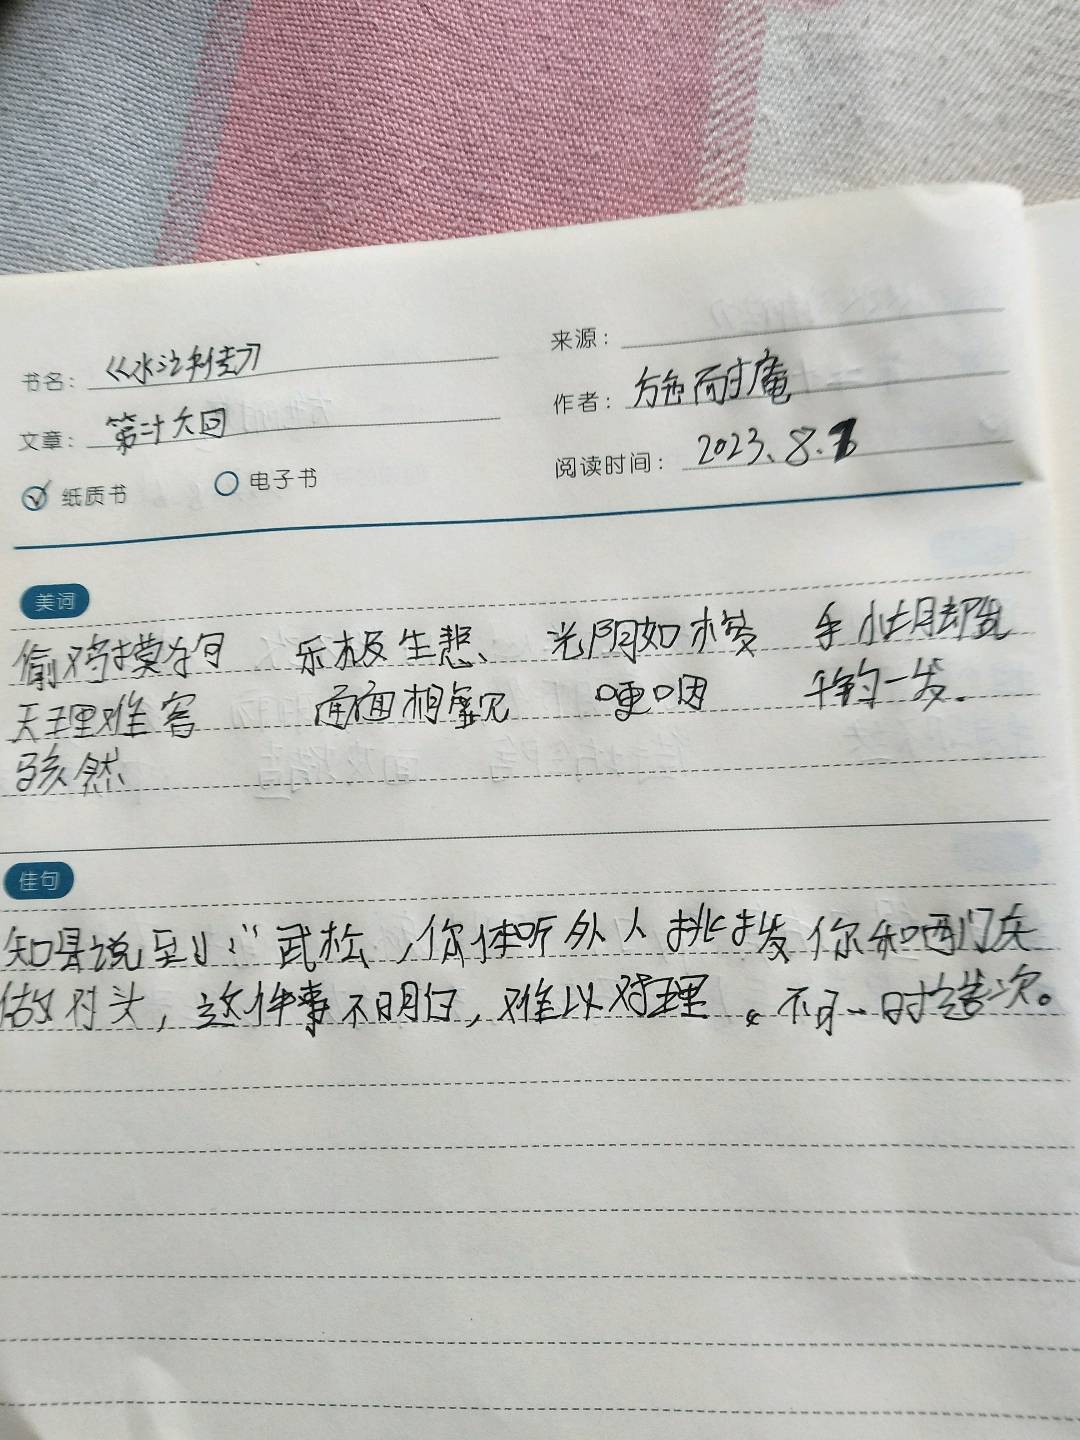 书名：《水浒传》
来源：
文章：第二十六回
作者：施耐庵
纸质书 电子书
阅读时间：2023、8.
美词
偷鸡摸狗 乐极生悲、 光阴如梭 手忙脚乱
天理难容 面面相觑 哽咽 千钧一发.
骇然
佳句
知县说到：“武松，你休听外人挑拨你和西门庆
做对头，这件事不明白，难以对理。不可一时造次。